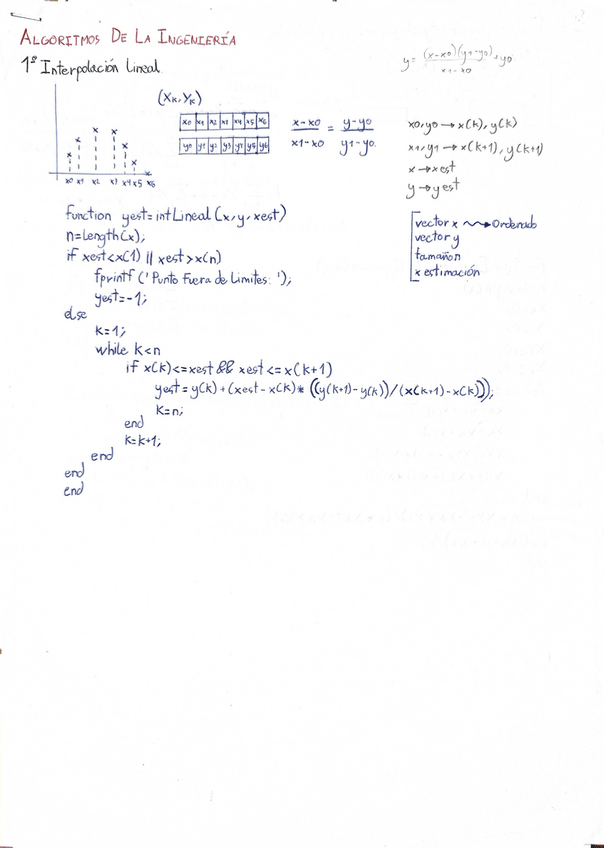 ALGORITMOS DE LA INGENIERÍA
1º Interpolación Lineal
y = (x-x0)(y1-y0) + y0
x1-x0
(XK, YK)
x0 x1 x2 x3 x4 x5 x6
y0 y1 y2 y3 y4 y5 y6
x-x0 = y-y0
x1-x0 y1-y0.
x0, y0 → x(k), y(k)
x1, y1 → x(k+1), y(k+1)
x → xest
y → yest
x0 x1 x2 x3 x4 x5 x6
vector x ⟿ Ordenado
vector y
tamaño n
x estimación
function yest=intLineal (x,y,xest)
n=Length(x);
if xest<x(1) || xest>x(n)
fprintf ('Punto Fuera de Limites: ');
yest=-1;
else
k=1;
while k<n
if x(k)<=xest && xest<=x(k+1)
yest=y(k)+(xest-x(k)*((y(k+1)-y(k))/(x(k+1)-x(k)));
k=n;
end
k=k+1;
end
end
end